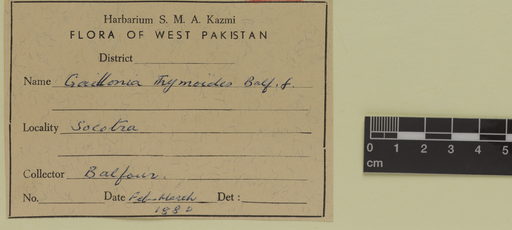 Harbarium S. M. A. Kazmi
FLORA OF WEST PAKISTAN
District
Name Gaillonia Thymoides Balf. f.
Locality Socotra
Collector Balfour.
No. Date Feb-March Det :
1880
0 1 2 3 4 5
cm